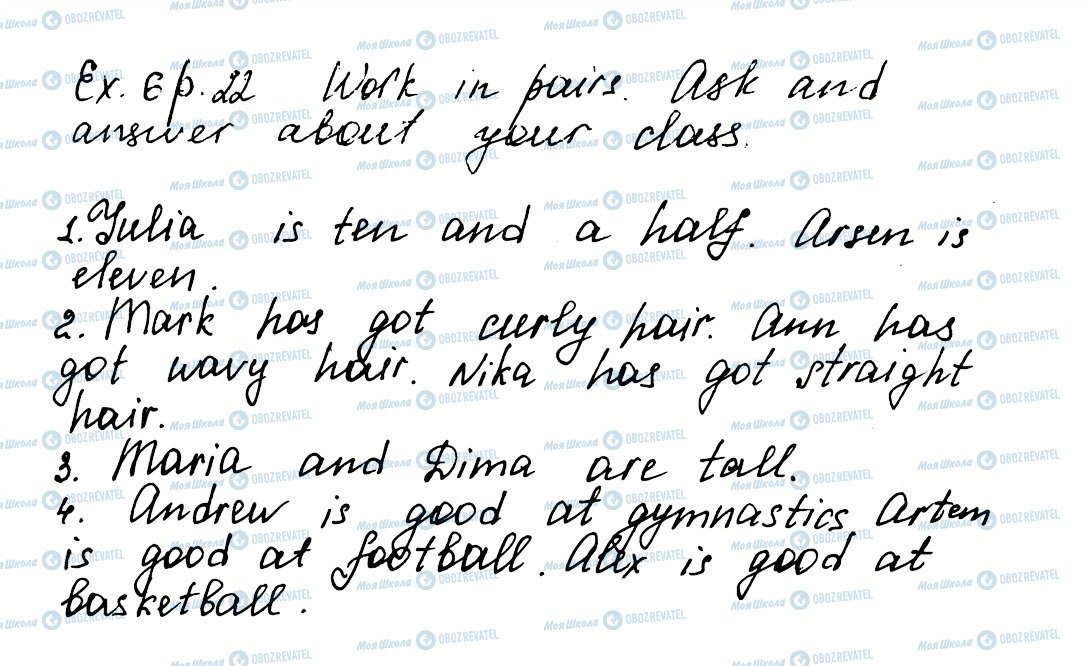 Ex. 6 p. 22 Work in pairs. Ask and
answer about your class.
1. Yulia is ten and a half. Arsen is
eleven.
2. Mark has got curly hair. Ann has
got wavy hair. Nika has got straight
hair.
3. Maria and Dima are tall.
4. Andrew is good at gymnastics Artem
is good at football. Alex is good at
basketball.